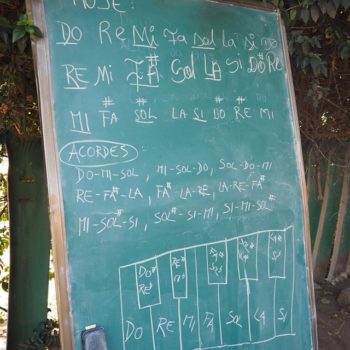 DO Re Mi Fa Sol La Si DO
RE Mi FA# Sol LA Si DO# RE
MI FA# SOL# LA SI DO# RE# MI
ACORDES:
DO-MI-SOL, MI-SOL-DO, SOL-DO-MI
RE-FA#-LA, FA#-LA-RE, LA-RE-FA#
MI-SOL#-SI, SOL#-SI-MI, SI-MI-SOL#
DO# RE#
DO RE MI FA SOL LA SI